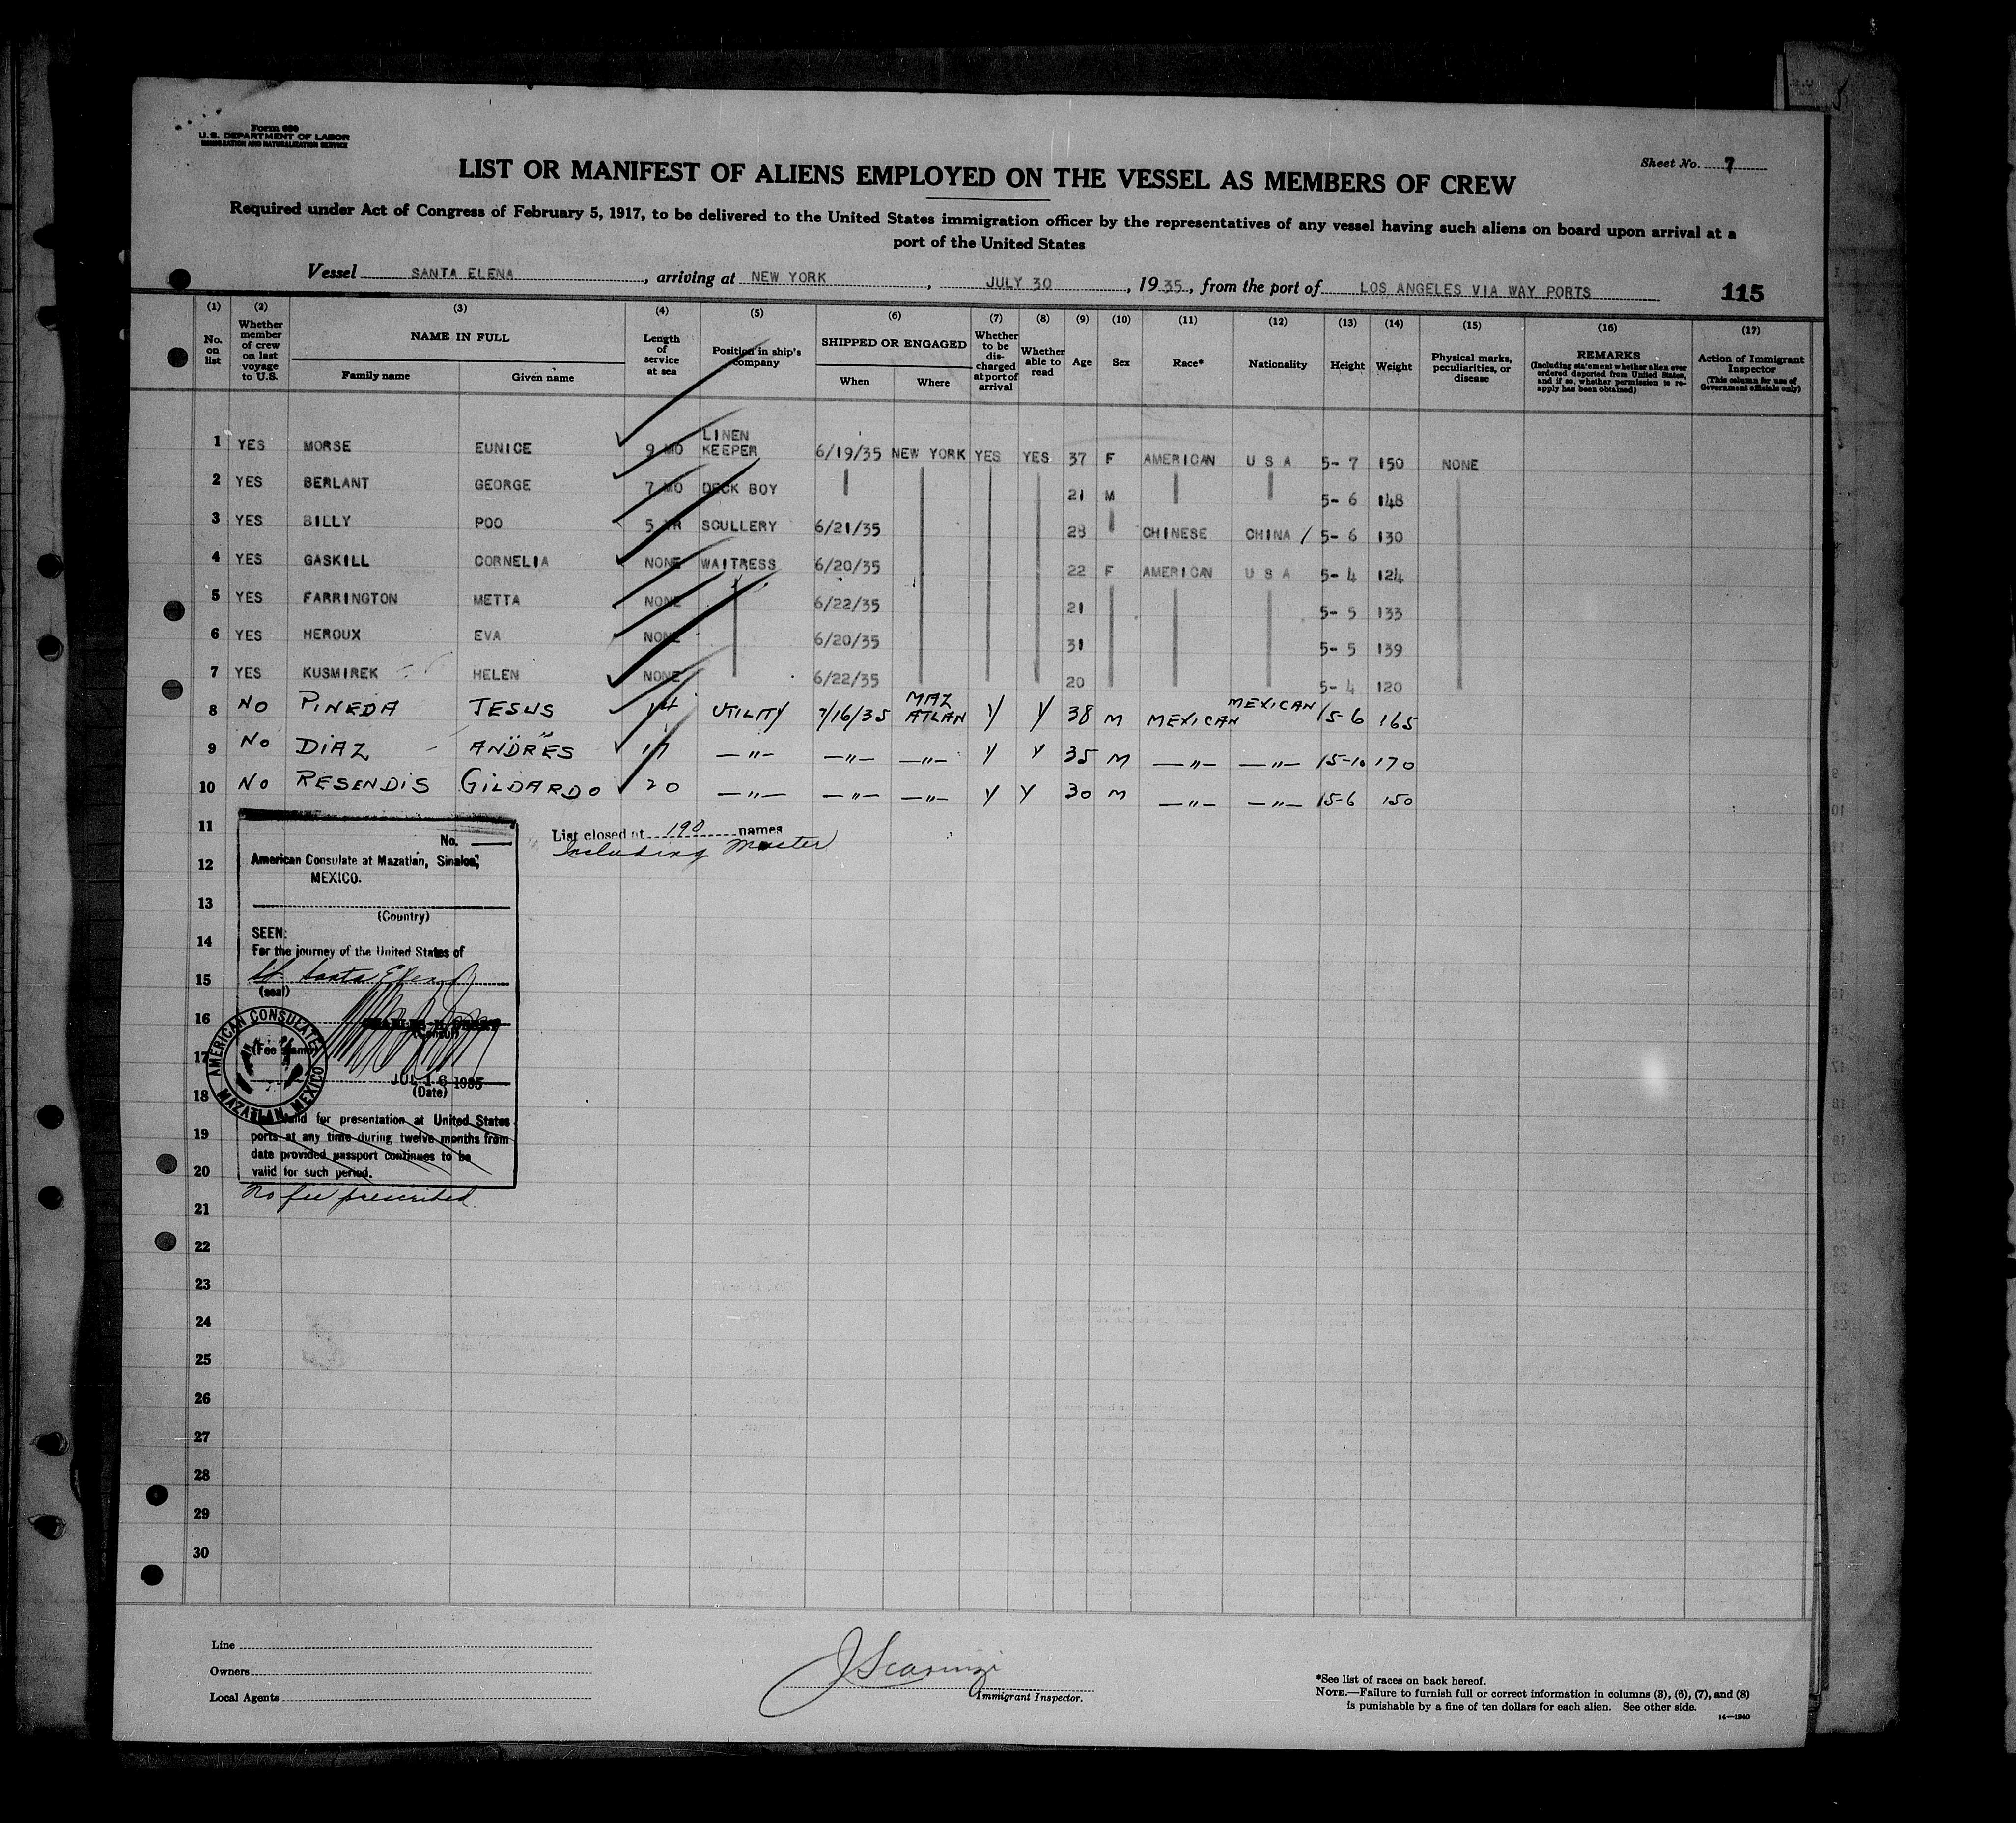 Form 680
U. S. DEPARTMENT OF LABOR
IMMIGRATION AND NATURALIZATION SERVICE
Sheet No. 7
LIST OR MANIFEST OF ALIENS EMPLOYED ON THE VESSEL AS MEMBERS OF CREW
Required under Act of Congress of February 5, 1917, to be delivered to the United States immigration officer by the representatives of any vessel having such aliens on board upon arrival at a
port of the United States
Vessel SANTA ELENA, arriving at NEW YORK, JULY 30, 1935, from the port of LOS ANGELES VIA WAY PORTS 115
(1) (2) (3) (4) (5) (6) (7) (8) (9) (10) (11) (12) (13) (14) (15) (16) (17)
No. on list
Whether member of crew on last voyage to U.S.
NAME IN FULL
Family name Given name
Length of service at sea
Position in ship's company
SHIPPED OR ENGAGED
When Where
Whether to be discharged at port of arrival
Whether able to read
Age Sex Race* Nationality Height Weight
Physical marks, peculiarities, or disease
REMARKS
(Including statement whether alien ever ordered deported from United States, and if so, whether permission to reapply has been obtained)
Action of Immigrant Inspector
(This column for use of Government officials only)
1 YES MORSE EUNICE 9 MO LINEN KEEPER 6/19/35 NEW YORK YES YES 37 F AMERICAN U S A 5- 7 150 NONE
2 YES BERLANT GEORGE 7 MO DECK BOY 21 M 5- 6 148
3 YES BILLY POO 5 YR SCULLERY 6/21/35 28 CHINESE CHINA / 5- 6 130
4 YES GASKILL CORNELIA NONE WAITRESS 6/20/35 22 F AMERICAN U S A 5- 4 124
5 YES FARRINGTON METTA NONE 6/22/35 21 5- 5 133
6 YES HEROUX EVA NONE 6/20/35 31 5- 5 139
7 YES KUSMIREK HELEN NONE 6/22/35 20 5- 4 120
8 NO PINEDA JESUS 14 UTILITY 7/16/35 MAZ ATLAN Y Y 38 M MEXICAN MEXICAN 5-6 165
9 NO DIAZ ANDRES 17 —"— —"— —"— Y Y 35 M —"— —"— 5-10 170
10 NO RESENDIS GILDARDO 20 —"— —"— —"— Y Y 30 M —"— —"— 5-6 150
11
List closed at 190 names
Including Master
12
13
14
15
16
17
18
19
20
21
22
23
24
25
26
27
28
29
30
No.
American Consulate at Mazatlan, Sinaloa,
MEXICO.
(Country)
SEEN:
For the journey of the United States of
SS. Santa Elena
(seal)
(Consul)
(Fee stamp)
AMERICAN CONSULATE
MAZATLAN, MEXICO
JUL 16 1935
(Date)
valid for presentation at United States
ports at any time during twelve months from
date provided passport continues to be
valid for such period.
No fee prescribed
Line
Owners
Local Agents
Immigrant Inspector.
*See list of races on back hereof.
NOTE.—Failure to furnish full or correct information in columns (3), (6), (7), and (8)
is punishable by a fine of ten dollars for each alien. See other side.
14—1240